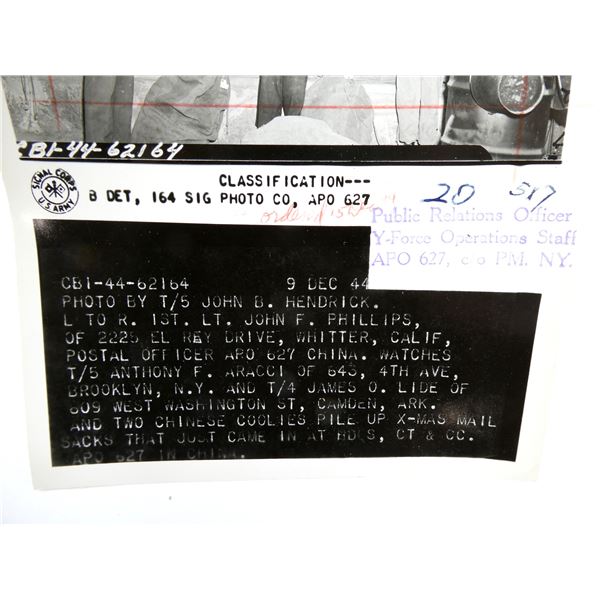 CBI-44-62164
SIGNAL CORPS
U.S. ARMY
CLASSIFICATION---
B DET, 164 SIG PHOTO CO, APO 627
20 517
Public Relations Officer
Y-Force Operations Staff
APO 627, c/o P.M. NY.
CBI-44-62164 9 DEC 44
PHOTO BY T/5 JOHN B. HENDRICK.
L TO R. 1ST. LT. JOHN F. PHILLIPS,
OF 2225 EL REY DRIVE, WHITTER, CALIF,
POSTAL OFFICER APO 627 CHINA. WATCHES
T/5 ANTHONY F. ARACCI OF 643, 4TH AVE,
BROOKLYN, N.Y. AND T/4 JAMES O. LIDE OF
809 WEST WASHINGTON ST, CAMDEN, ARK.
AND TWO CHINESE COOLIES PILE UP X-MAS MAIL
SACKS THAT JUST CAME IN AT HDQS, CT & CC.
APO 627 IN CHINA.